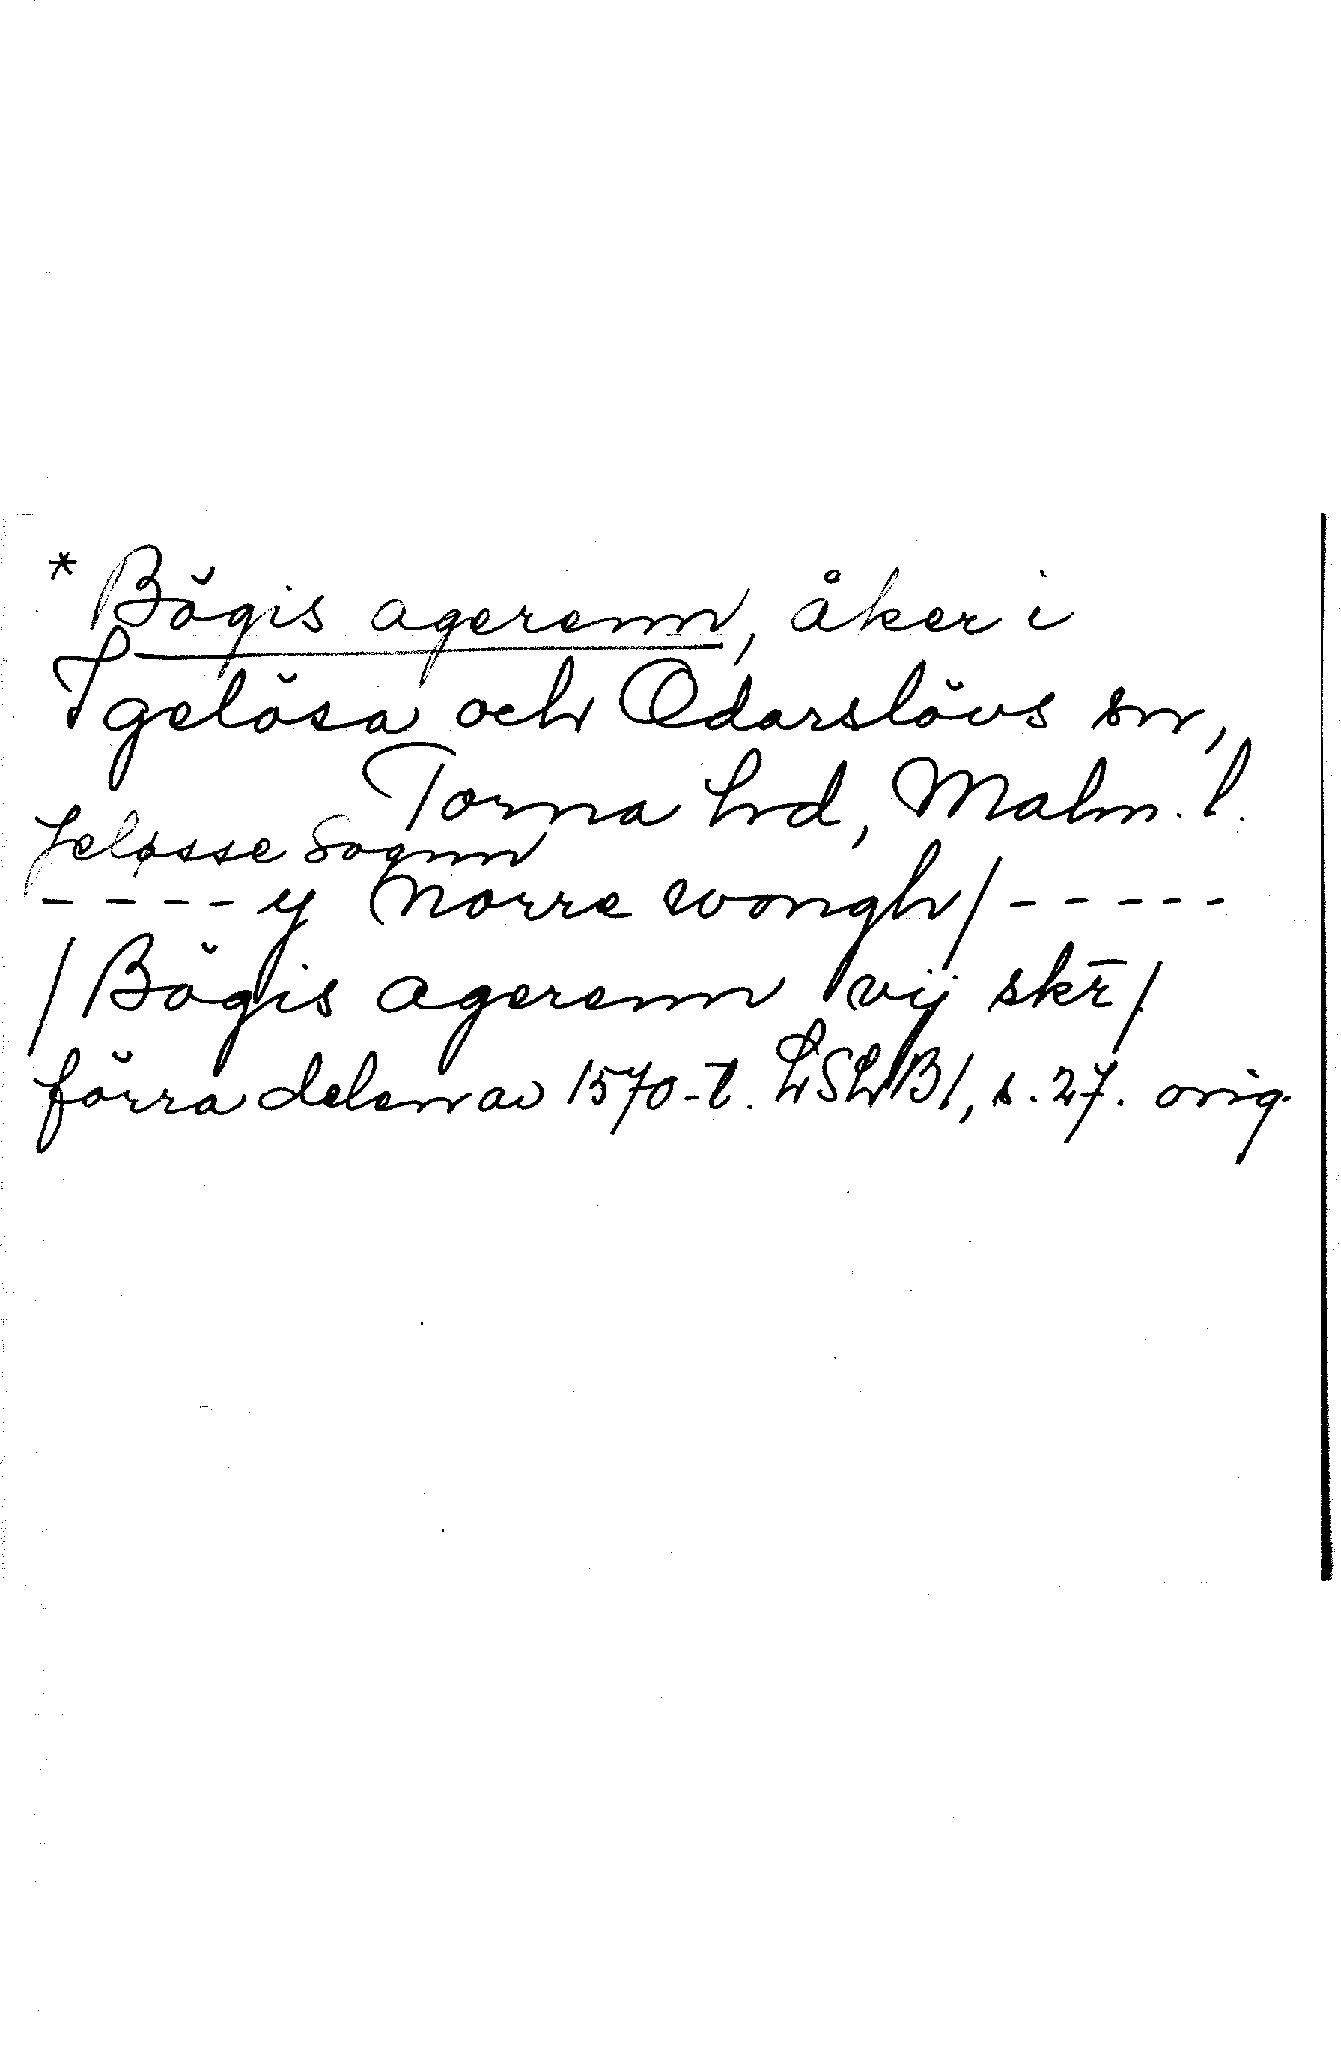 * Bögis agerenn, åker i
Igelösa och Odarslövs snr,
Torna hd, Malm. l.
Jeløsse Sognn
- - - - - y Norre wongh / - - - - -
/ Bögis agerenn vij skr̄ /
förra delen av 1570-t. LSLB1, s. 27. orig.